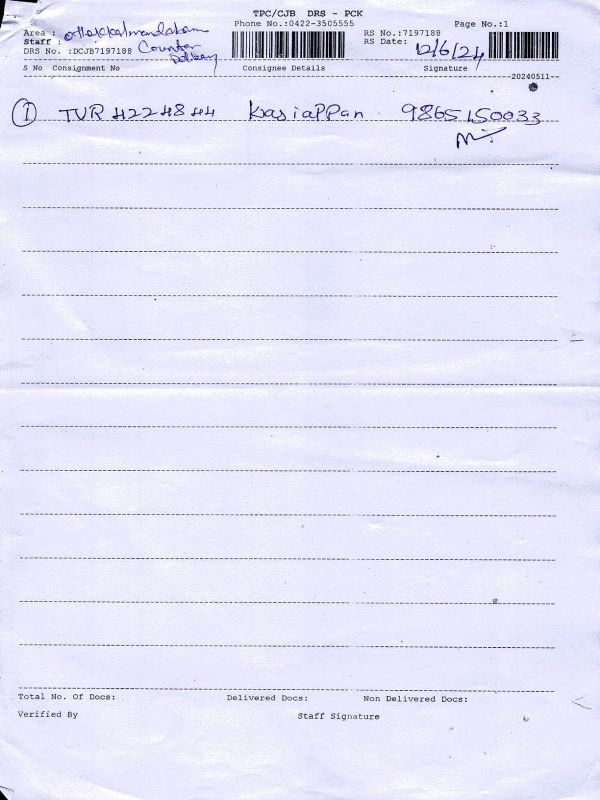 TPC/CJB DRS - PCK
Phone No.:0422-3505555 Page No.:1
Area : othakkalmandakam RS No.:7197188
Staff : Counter Delivery RS Date: 12/6/24
DRS No. :DCJB7197188
S No Consignment No Consignee Details Signature
20240511
1 TUR 4224844 Kasiappan 9865150033
Total No. Of Docs: Delivered Docs: Non Delivered Docs:
Verified By Staff Signature